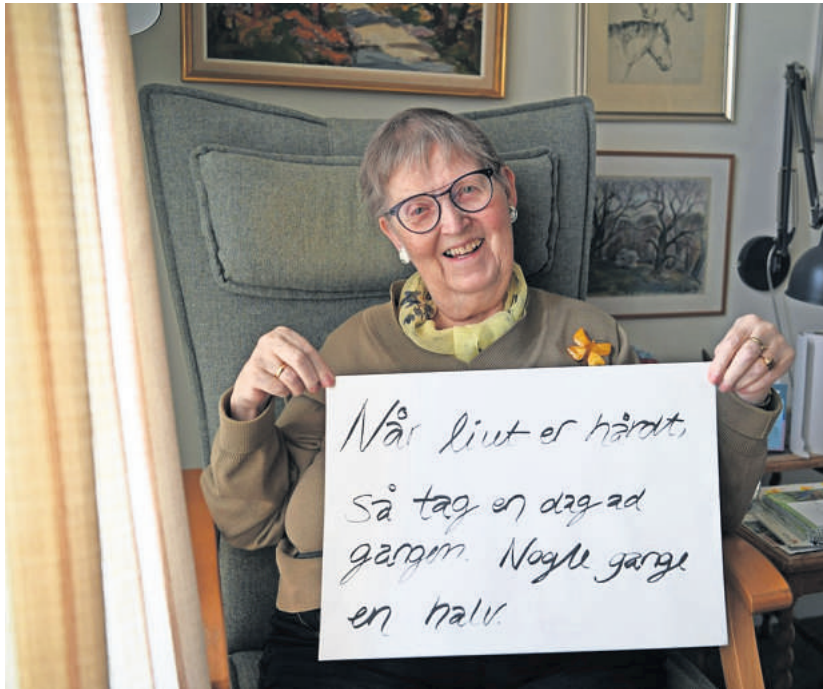 Når livet er hårdt,
så tag en dag ad
gangen. Nogle gange
en halv.